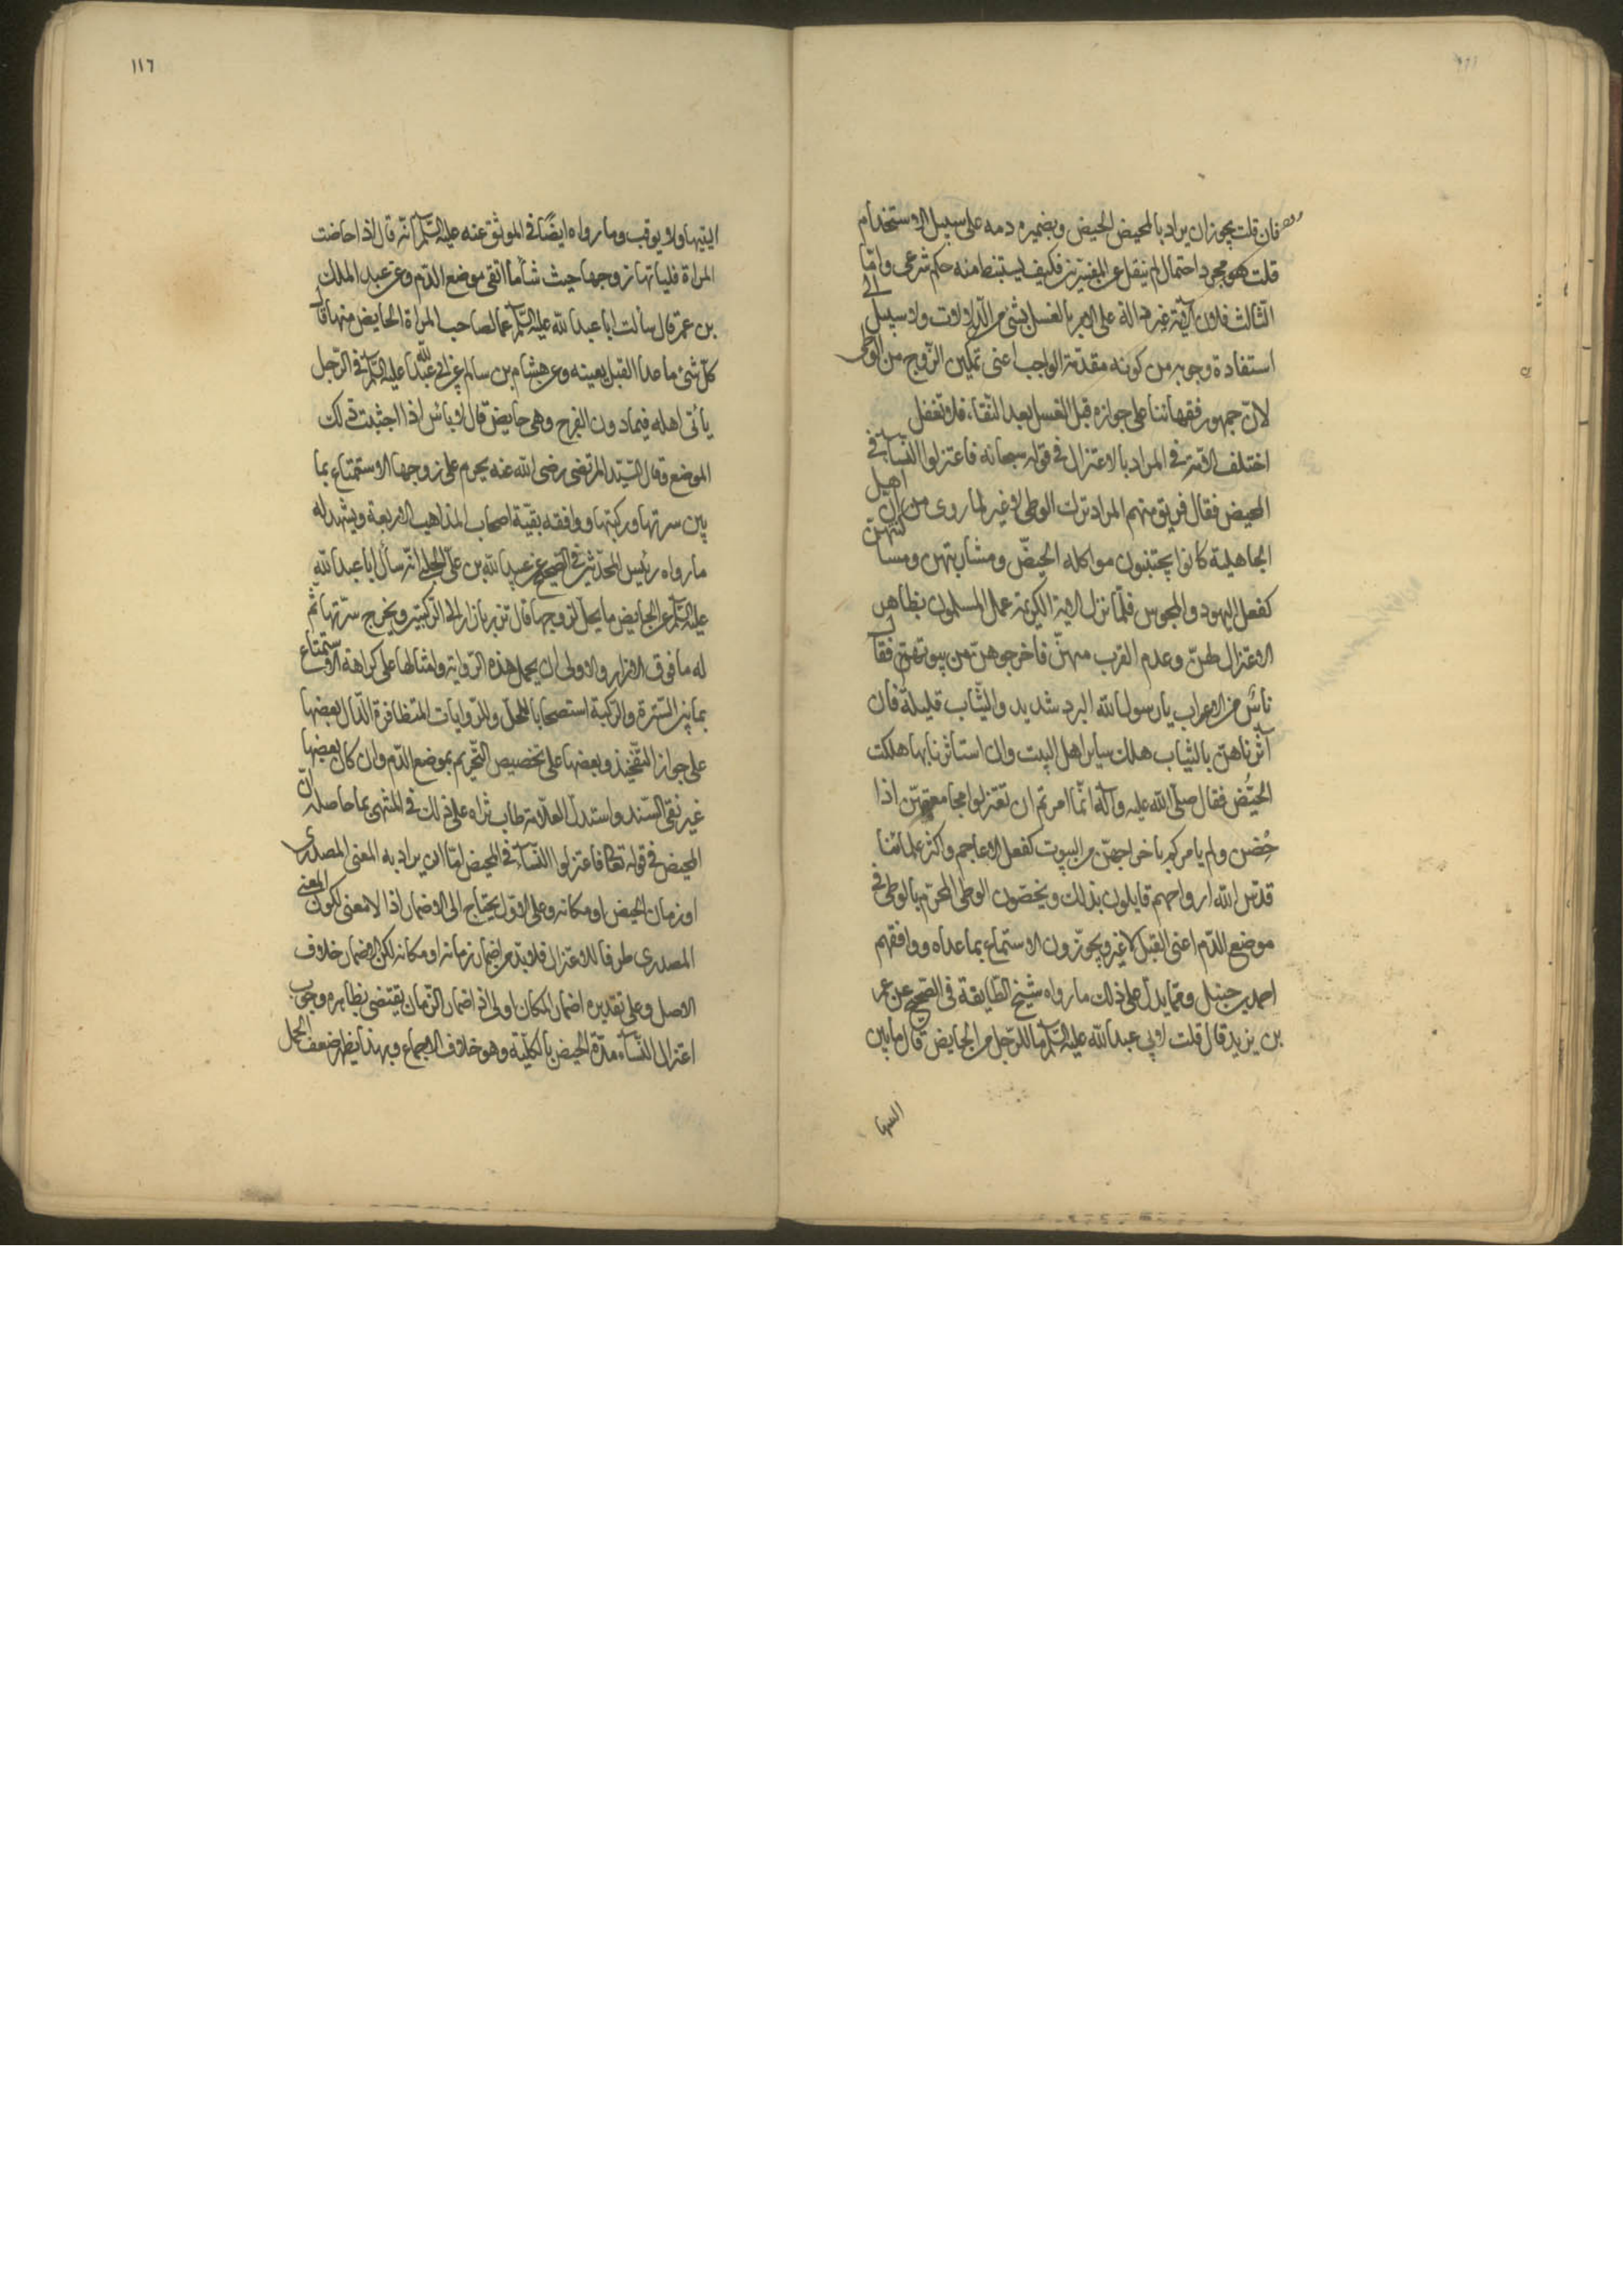 فان قلت يجوز ان يراد بالمحيض الحيض وبضميره دمه على سبيل الاستخدام
قلت هو مجرد احتمال لم ينقل عن المفسرين فكيف يستنبط منه حكم شرعي واما
الثالث فلان الآية غير دالة على الامر بالغسل بشئ من الدلالات ولا سبيل الى
استفادة وجوبه من كونه مقدمة الواجب اعنى تمكين الزوج من الوطى
لان جمهور فقهائنا على جوازه قبل الغسل بعد النقاء فلا تغفل
اختلف الامة في المراد بالاعتزال في قوله سبحانه فاعتزلوا النساء في
المحيض فقال فريق منهم المراد ترك الوطى لا غير لما روى من ان اهل
الجاهلية كانوا يجتنبون مواكلة الحيّض ومشاربتهن ومساكنتهن
كفعل اليهود والمجوس فلمّا نزل الاية الكريمة عمل المسلمون بظاهر
الاعتزال لهنّ وعدم القرب منهنّ فاخرجوهنّ من بيوتهنّ فقال
ناس من الاعراب يا رسول الله البرد شديد والثياب قليلة فان
آثرناهنّ بالثياب هلك ساير اهل البيت وان استاثرنا بها هلكت
الحيّض فقال صلى الله عليه وآله انّما امرتم ان تعتزلوا مجامعتهنّ اذا
حُضن ولم يامركم باخراجهنّ من البيوت كفعل الاعاجم واكثر علمائنا
قدّس الله ارواحهم قايلون بذلك ويخصّون الوطى المحرّم بالوطى في
موضع الدّم اعنى القبل لا غير ويجوّزون الاستمتاع بما عداه ووافقهم
احمد بن حنبل وممّا يدلّ على ذلك ما رواه شيخ الطّايفة في الصّحيح عن عمر
بن يزيد قال قلت لابي عبد الله عليه السّلم ما للرّجل من الحايض قال ما بين
اليتيها
١١٦
اليتيها ولا يوقب وما رواه ايضًا في الموثق عنه عليه السّلم انّه قال اذا حاضت
المراة فلياتها زوجها حيث شاء ما اتقى موضع الدّم وعن عبد الملك
بن عمرو قال سالت ابا عبد الله عليه السّلم عما لصاحب المراة الحايض منها قال
كلّ شئ ما عدا القبل بعينه وعن هشام بن سالم عن ابي عبد الله عليه السّلم في الرّجل
يأتى اهله فيما دون الفرج وهى حايض قال لا باس اذا اجتنبت ذلك
الموضع وقال السّيّد المرتضى رضى الله عنه يحرم على زوجها الاستمتاع بما
بين سرتها وركبتها ووافقه بقيّة اصحاب المذاهب الاربعة ويشهد له
ما رواه رئيس المحدّثين في الصّحيح عن عبيد الله بن على الحلبى انّه سأل ابا عبد الله
عليه السّلم عن الحايض ما يحلّ لزوجها قال تتزر بازار الى الرّكبتين وتخرج سرّتها ثمّ
له ما فوق الازار والاولى ان يحمل هذه الرّواية وامثالها على كراهة الاستمتاع
بما بين السّرة والرّكبة استصحابا للحلّ وللرّوايات المتظافرة الدّال بعضها
على جواز التّفخيذ وبعضها على تخصيص التّحريم بموضع الدّم وان كان بعضها
غير نقى السّند واستدلّ العلّامة طاب ثراه على ذلك في المنتهى بما حاصله انّ
المحيض في قوله تعالى فاعتزلوا النّساء في المحيض امّا ان يراد به المعنى المصدرى
او زمان الحيض او مكانه وعلى الاوّل يحتاج الى الاضمار اذ لا معنى لكون المعنى
المصدرى ظرفا للاعتزال فلا بدّ من اضمار زمانه او مكانه لكن الاضمار خلاف
الاصل وعلى تقديره اضمار المكان اولى اذ اضمار الزّمان يقتضى بظاهره وجوب
اعتزال النّساء مدّة الحيض بالكليّة وهو خلاف الاجماع وبهذا يظهر ضعف الحمل